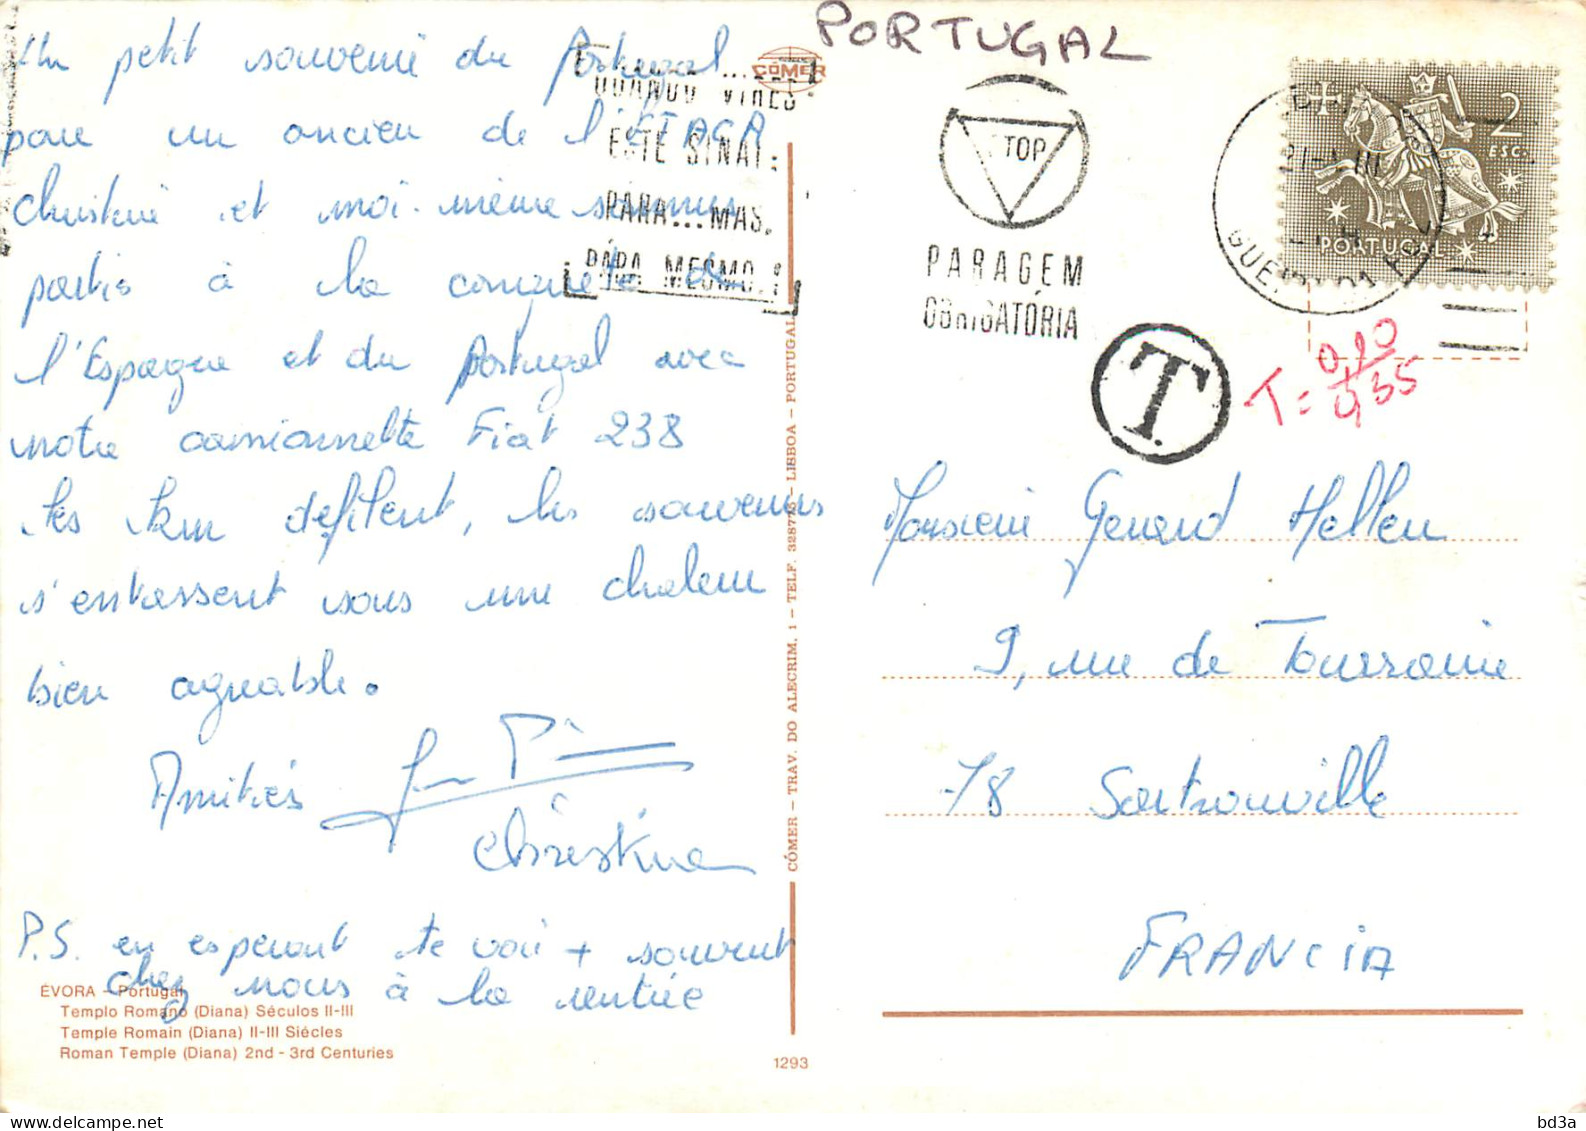 Un petit souvenir du Portugal
pour un ancien de l'ETACA
Christine et moi-même sommes
partis à la conquête de
l'Espagne et du Portugal avec
notre camionnette Fiat 238
les km défilent, les souvenirs
s'entassent sous une chaleur
bien agréable.
Amitiés
Christine
P.S. en espérant te voir + souvent
chez nous à la rentrée
ÉVORA - Portugal
Templo Romano (Diana) Séculos II-III
Temple Romain (Diana) II-III Siécles
Roman Temple (Diana) 2nd - 3rd Centuries
CÓMER
CÓMER - TRAV. DO ALECRIM, 1 - TELF. 328775 - LISBOA - PORTUGAL
1293
PORTUGAL
QUANDO VIRES
ESTE SINAL:
PARA... MAS.
PÁRA MESMO.!
STOP
PARAGEM
OBRIGATÓRIA
2
ESC.
PORTUGAL
T.
T = 0,10
0,35
Monsieur Gerard Hellen
9, rue de Tourraine
78 Sartrouville
FRANCIA
bd3a